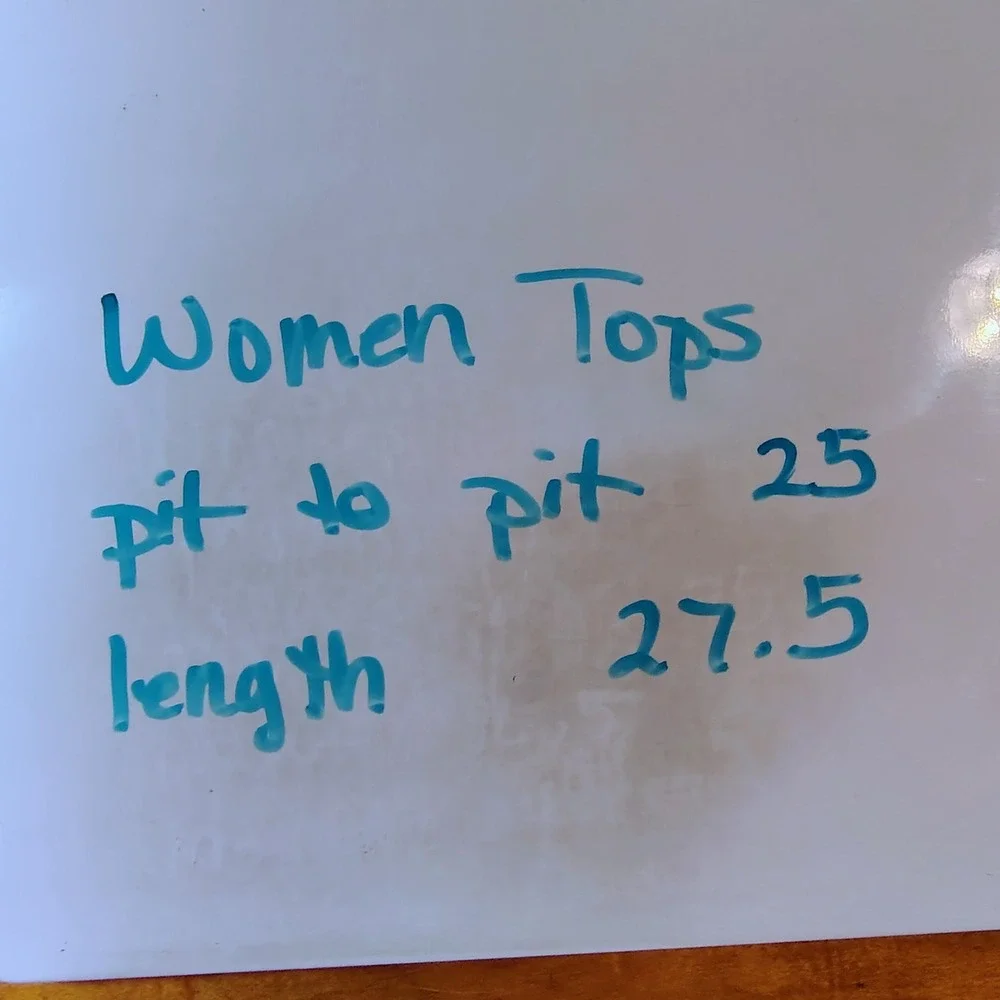 Women Tops
pit to pit 25
length 27.5